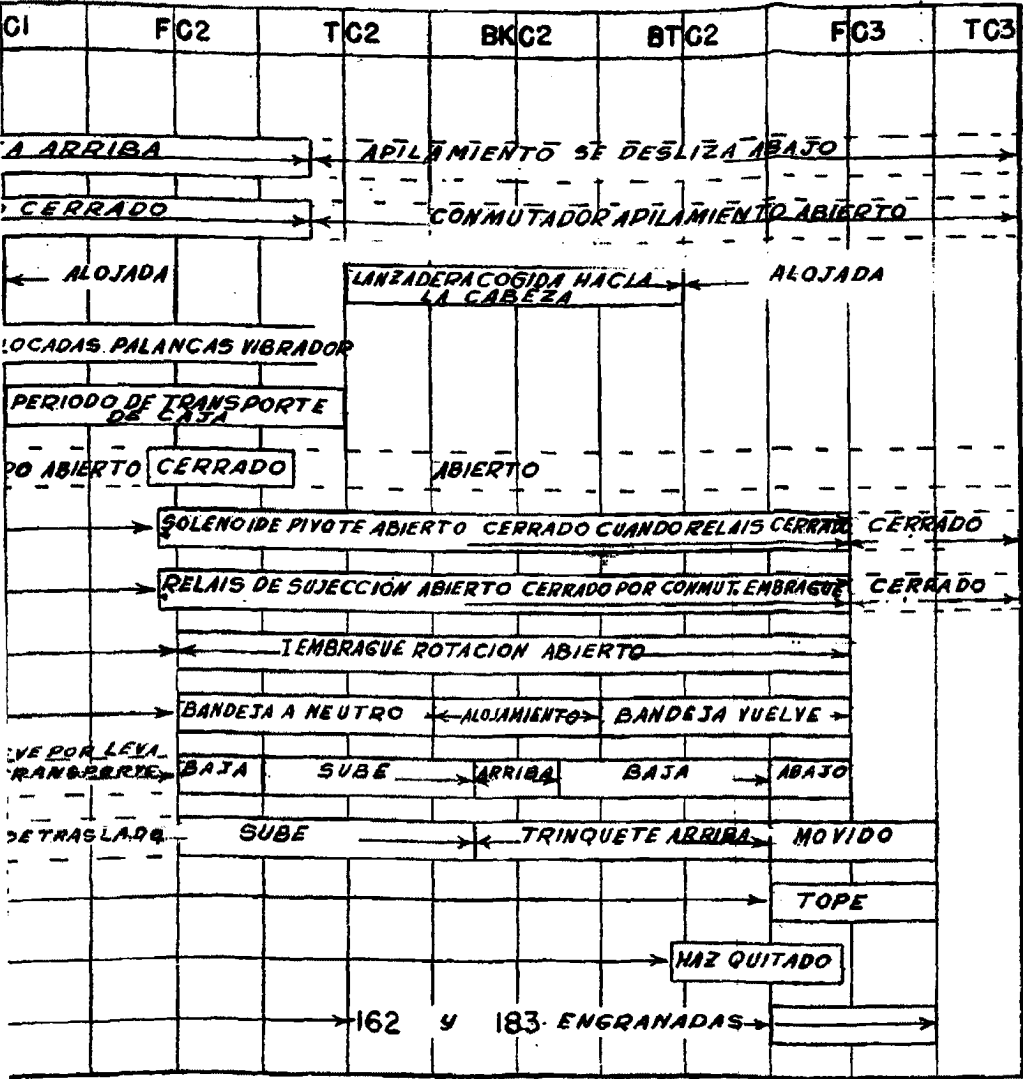 C1 FC2 TC2 BKC2 BTC2 FC3 TC3
A ARRIBA APILAMIENTO SE DESLIZA ABAJO
CERRADO CONMUTADOR APILAMIENTO ABIERTO
ALOJADA LANZADERA COGIDA HACIA ALOJADA
LA CABEZA
LOCADAS. PALANCAS VIBRADOR
PERIODO DE TRANSPORTE
DE CAJA
PO ABIERTO CERRADO ABIERTO
SOLENOIDE PIVOTE ABIERTO CERRADO CUANDO RELAIS CERRADO CERRADO
RELAIS DE SUJECCIÓN ABIERTO CERRADO POR CONMUT. EMBRAGUE CERRADO
EMBRAGUE ROTACION ABIERTO
BANDEJA A NEUTRO ALOJAMIENTO BANDEJA VUELVE
EVE POR LEVA
RANSPORTE BAJA SUBE ARRIBA BAJA ABAJO
DE TRASLADO SUBE TRINQUETE ARRIBA MOVIDO
TOPE
HAZ QUITADO
162 y 183 ENGRANADAS